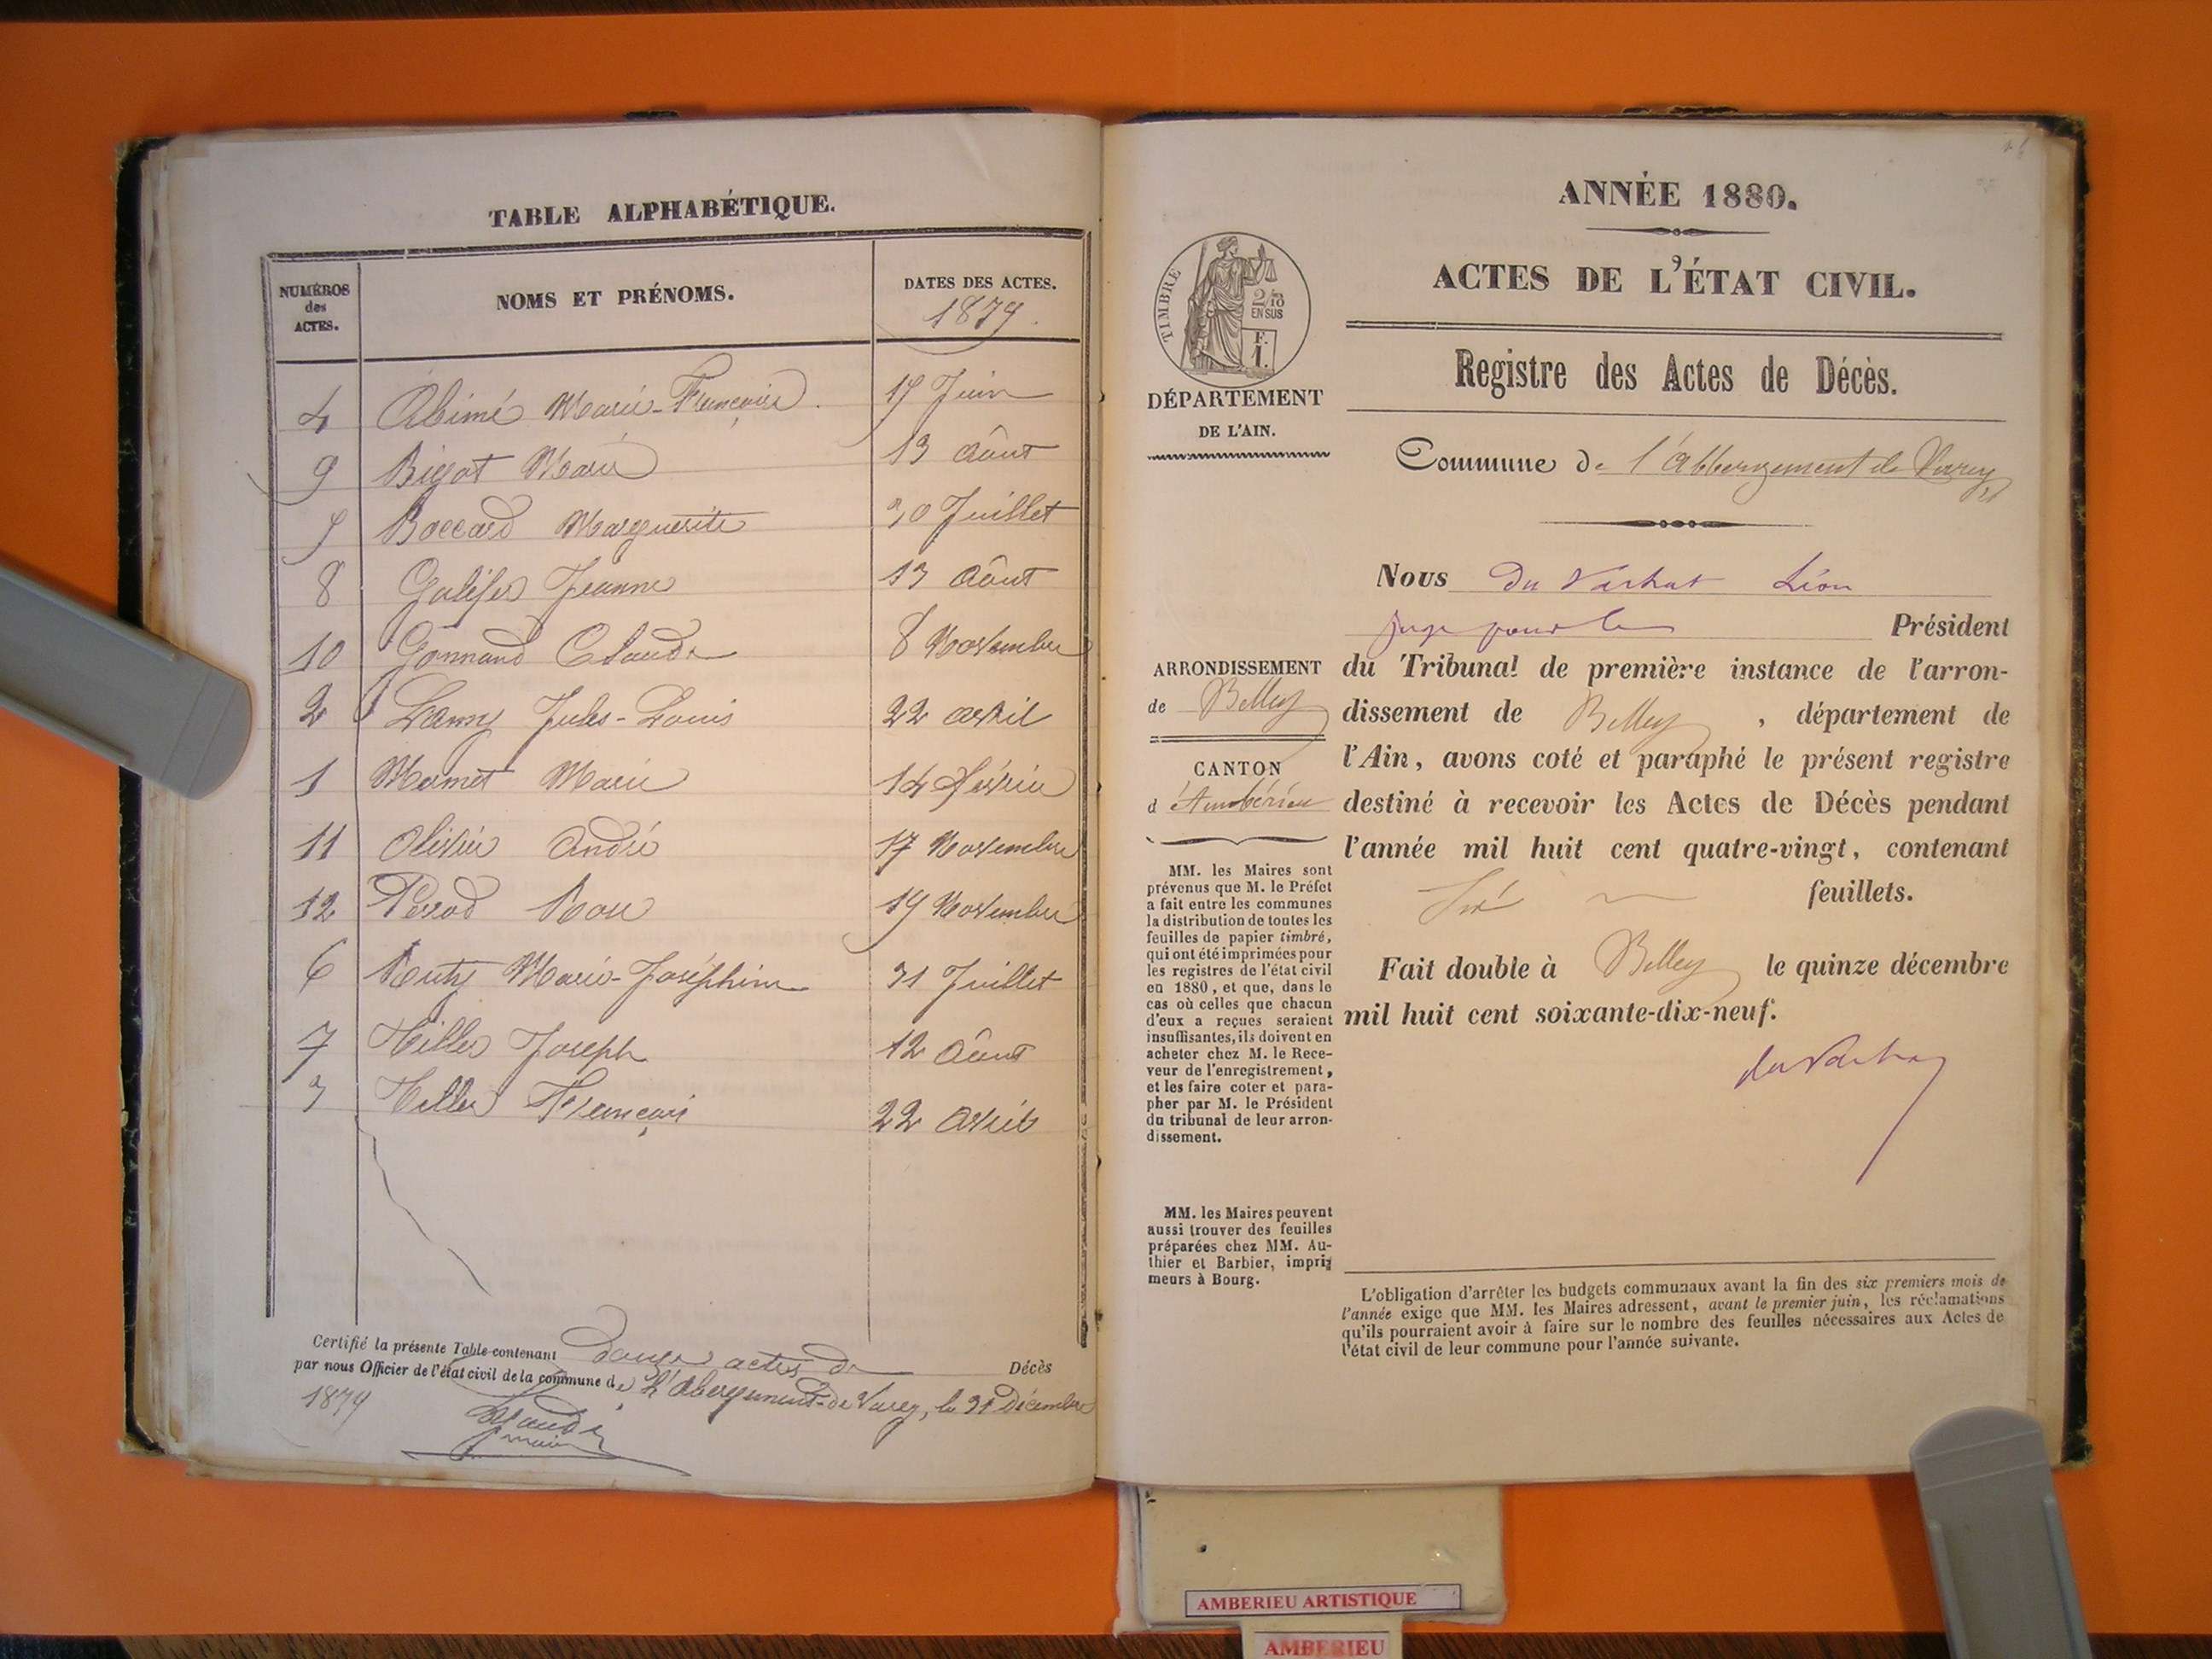 TABLE ALPHABÉTIQUE.
NUMÉROS des ACTES. NOMS ET PRÉNOMS. DATES DES ACTES.
1879.
4 Abimé Marie-Françoise. 17 Juin
9 Bigot Marie 13 Aôut
5 Boccard Marguerite 30 Juillet
8 Jeanne 13 Aôut
10 Gonnand Claude 8 Novembre
2 Lamy Jules-Louis 22 avril
1 Mamet Marie 14 Février
11 Olivier André 17 Novembre
12 Perrod 19 Novembre
6 Ruty Marie-Joséphine 31 Juillet
7 Tiller Joseph 12 Aôut
3 Tiller François 22 Avril
Certifié la présente Table contenant douze actes de Décès
par nous Officier de l'état civil de la commune de L'Abergement-de Varey, le 31 Décembre
1879
maire
ANNÉE 1880.
ACTES DE L'ÉTAT CIVIL.
Registre des Actes de Décès.
TIMBRE
2/10
EN SUS
F.
1.
DÉPARTEMENT
DE L'AIN.
Commune de l'Abbergement de Varey
Nous du Vachat Léon
juge pour le Président
du Tribunal de première instance de l'arron-
dissement de Belley, département de
l'Ain, avons coté et paraphé le présent registre
destiné à recevoir les Actes de Décès pendant
l'année mil huit cent quatre-vingt, contenant
feuillets.
Fait double à Belley le quinze décembre
mil huit cent soixante-dix-neuf.
du Vachat
ARRONDISSEMENT
de Belley
CANTON
d'Ambérieu
MM. les Maires sont
prévenus que M. le Préfet
a fait entre les communes
la distribution de toutes les
feuilles de papier timbré,
qui ont été imprimées pour
les registres de l'état civil
en 1880, et que, dans le
cas où celles que chacun
d'eux a reçues seraient
insuffisantes, ils doivent en
acheter chez M. le Rece-
veur de l'enregistrement,
et les faire coter et para-
pher par M. le Président
du tribunal de leur arron-
dissement.
MM. les Maires peuvent
aussi trouver des feuilles
préparées chez MM. Au-
thier et Barbier, impri-
meurs à Bourg.
L'obligation d'arrêter les budgets communaux avant la fin des six premiers mois de
l'année exige que MM. les Maires adressent, avant le premier juin, les réclamations
qu'ils pourraient avoir à faire sur le nombre des feuilles nécessaires aux Actes de
l'état civil de leur commune pour l'année suivante.
AMBERIEU ARTISTIQUE
AMBERIEU